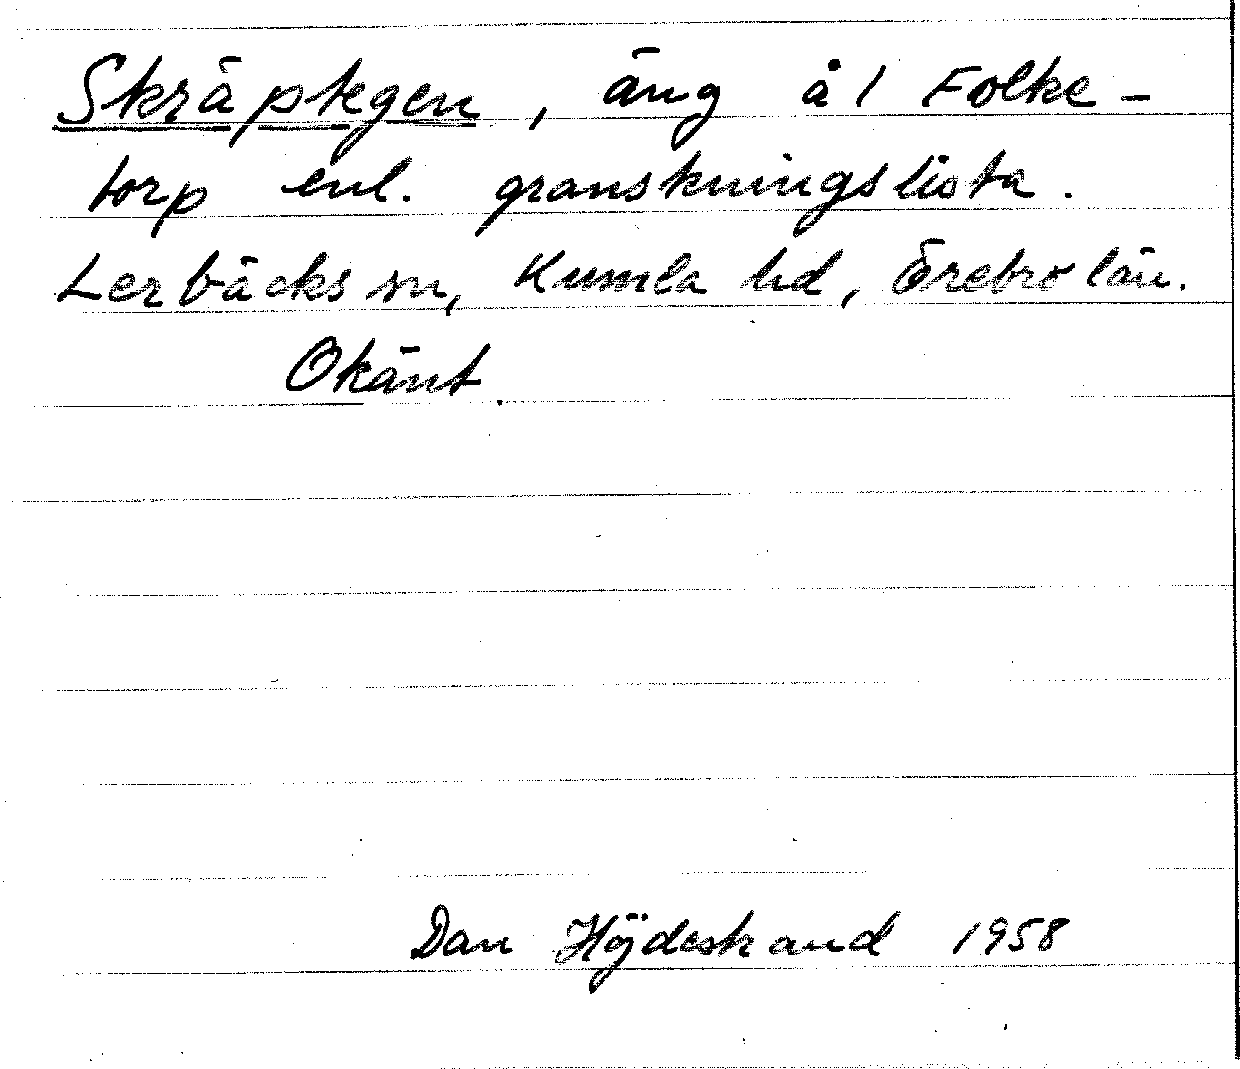 Skräptegen, äng å 1 Folke-
torp enl. granskningslista.
Lerbäcks sn, Kumla hd, Örebro län.
Okänt.
Dan Höjdestrand 1958